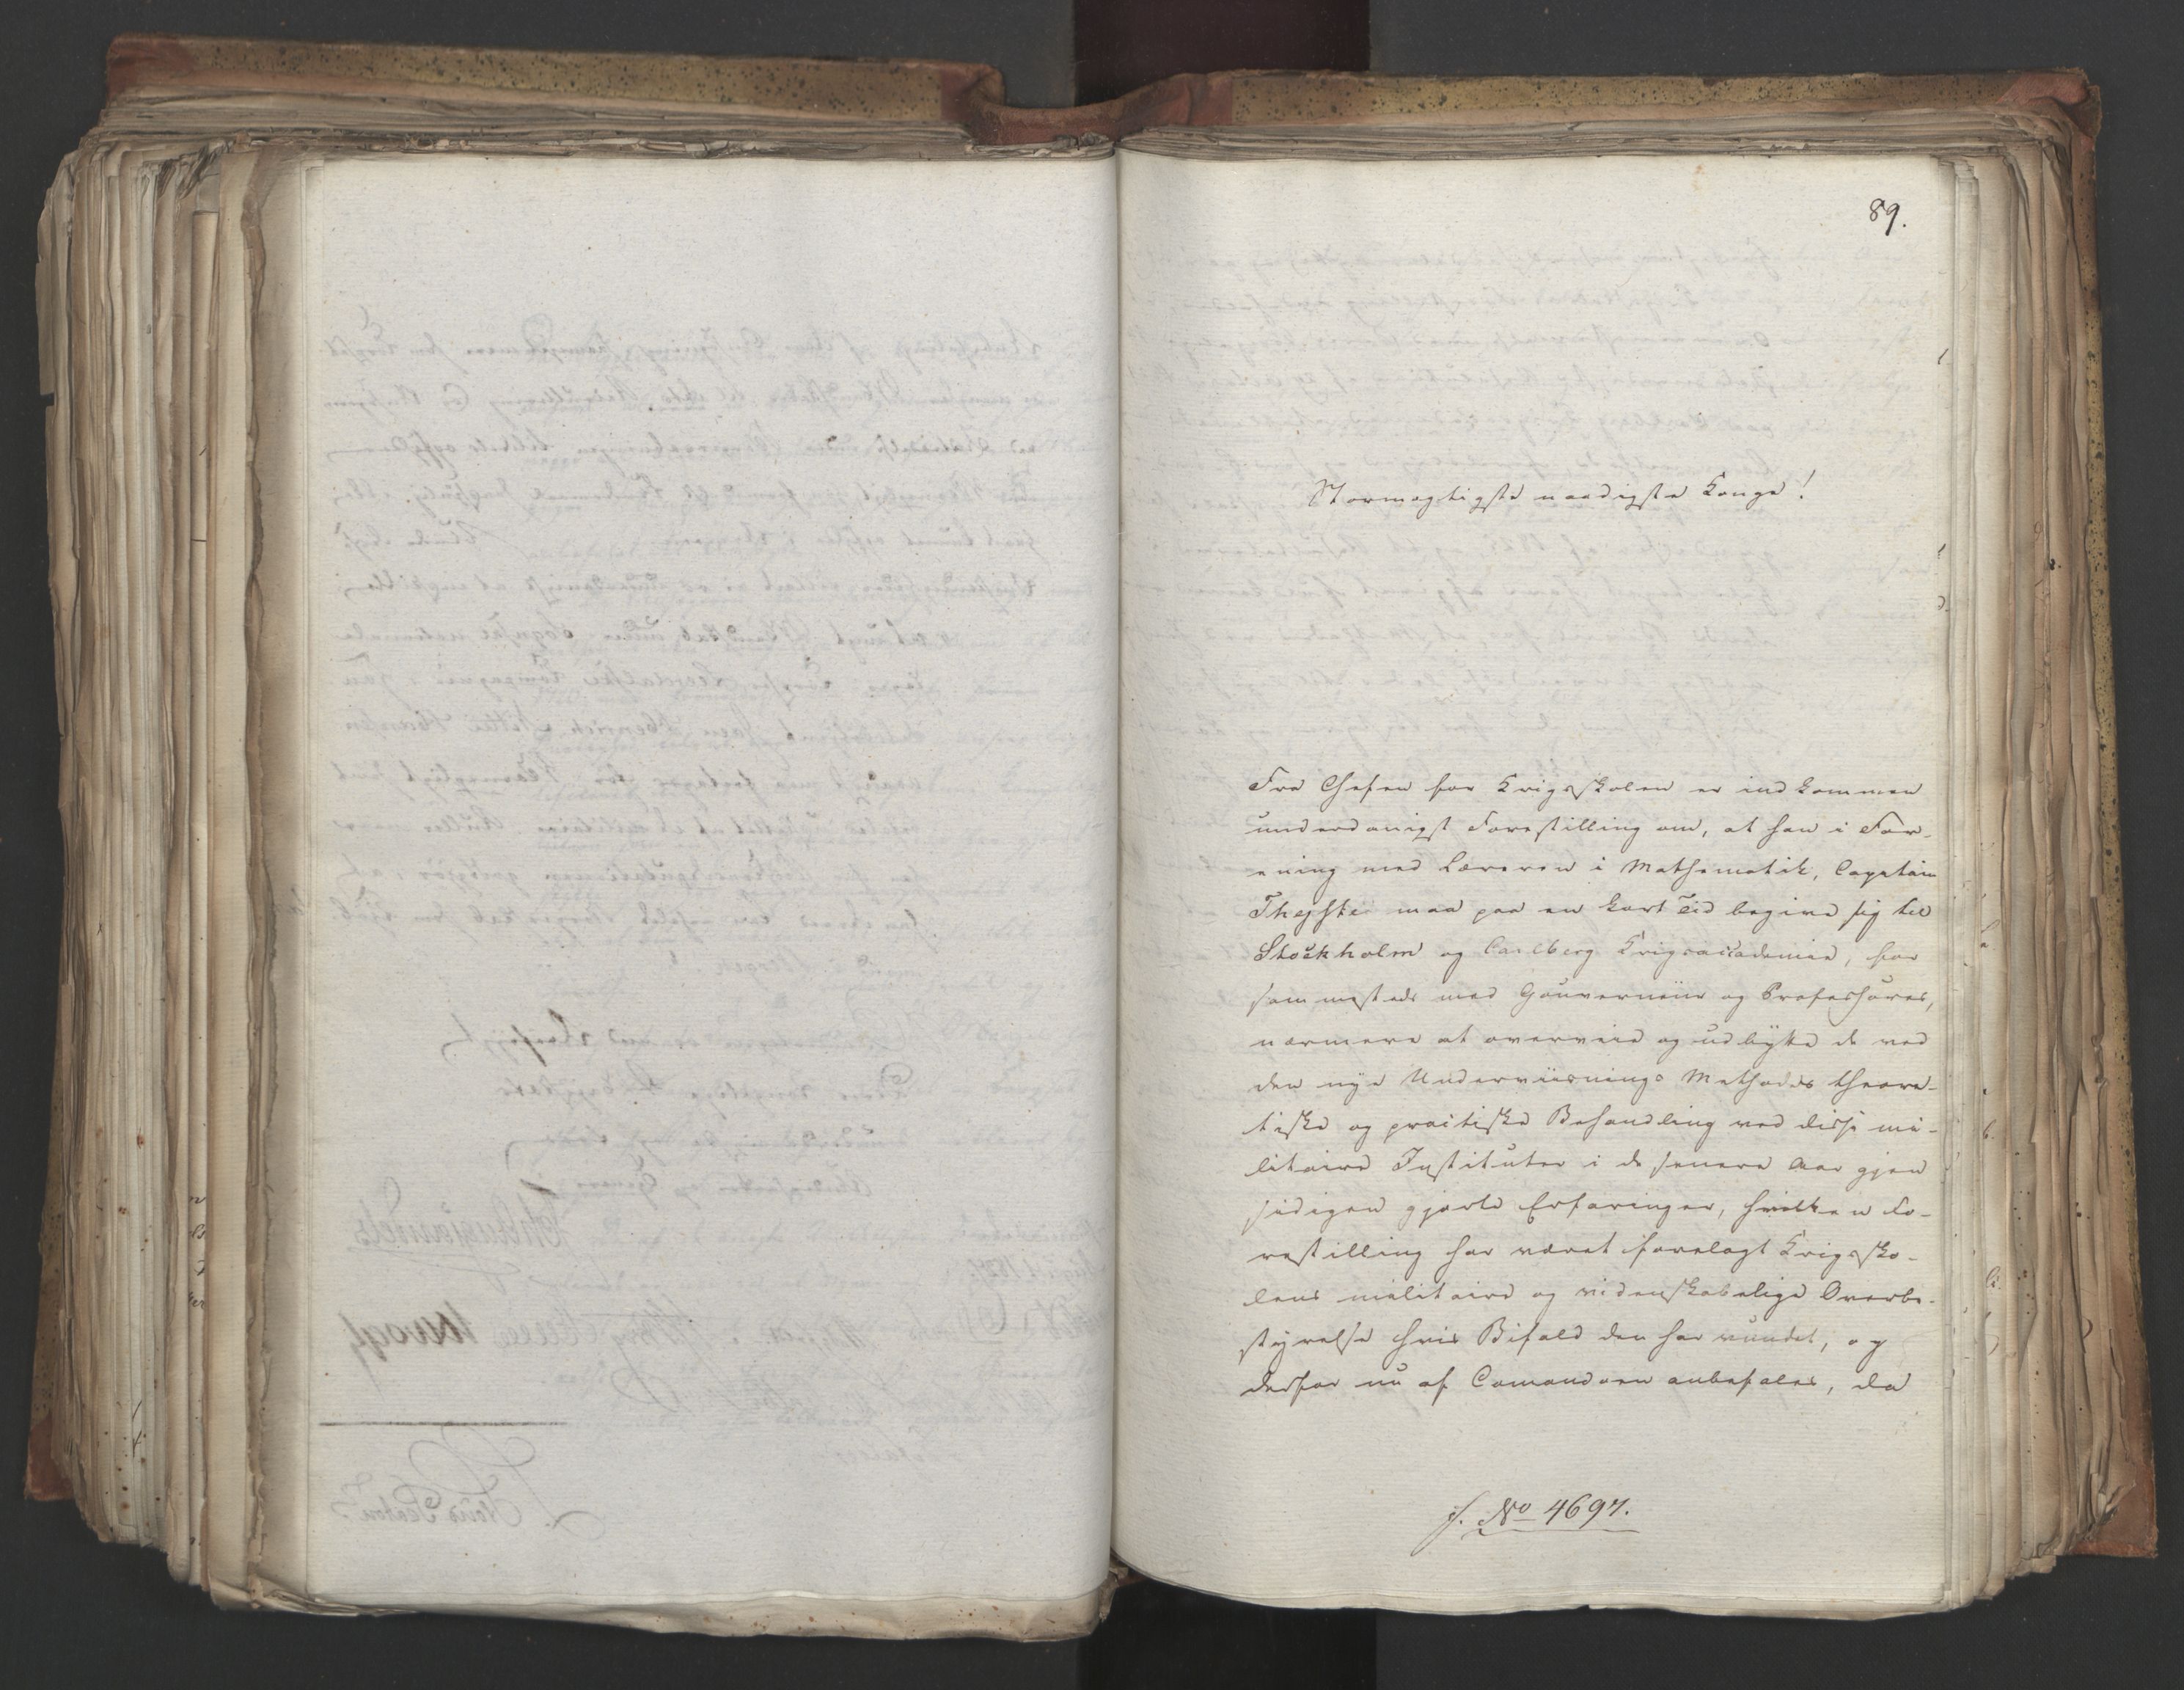 89.
Stormægtigste naadigste Konge!
Fra Chefen for Krigsskolen er indkommen
underdanigst Forestilling om, at han i For-
ening med Læreren i Mathematik, Captain
Theiste maa paa en kort Tid begive sig til
Stockholm og Carlberg Krigsaccademie, for
sammesteds med Gouverneur og Professores,
nærmere at overveie og udbytte de ved
den nye Underviisnings Methodes theore-
tiske og practiske Behandling ved disse mi-
litaire Instituter i de senere Aar gjen
sidigen gjorte Erfaringer, hvilken Fo-
restilling har været forelagt Krigssko-
lens militaire og videnskabelige Overbe-
styrelse hvis Bifald den har vundet, og
derfor nu af Comandoen anbefales, da
J. No 4697.